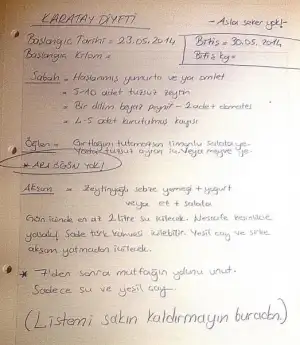 KARATAY DİYETİ
- Asla şeker yok!-
Başlangıç Tarihi = 23.05.2014
Bitiş = 30.05.2014
Başlangıç Kilom =
Bitiş kg =
Sabah = Haşlanmış yumurta ve ya omlet
= 5-10 adet tuzsuz zeytin
= Bir dilim beyaz peynir - 2 adet domates
= 4-5 adet kurutulmuş kayısı
Öğlen = limonlu salata ye.
tuzsuz ayran iç. Veya meyve ye.
* ARA ÖĞÜN YOK!
Akşam = Zeytinyağlı sebze yemeği + yoğurt
veya et + salata
Gün içinde en az 2 litre su içilecek. Nescafe kesinlikle
yasak! Sade türk kahvesi içilebilir. Yeşil çay ve sirke
akşam yatmadan içilecek.
* 7'den sonra mutfağın yolunu unut.
Sadece su ve yeşil çay.
(Listemi sakın kaldırmayın buradan.)